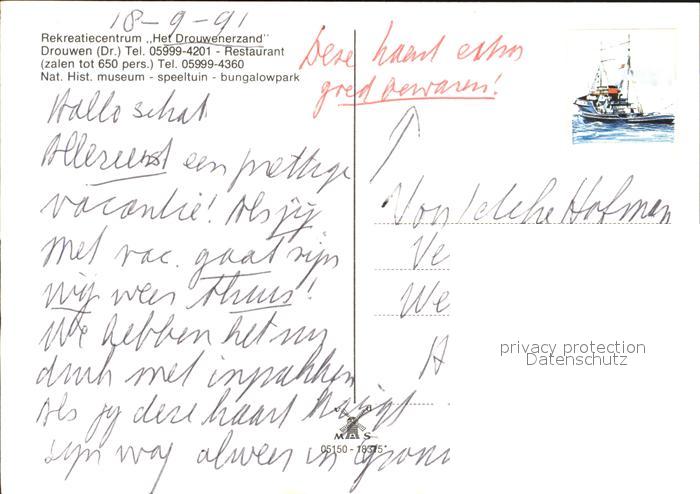 18-9-91
Rekreatiecentrum „Het Drouwenerzand"
Drouwen (Dr.) Tel. 05999-4201 - Restaurant
(zalen tot 650 pers.) Tel. 05999-4360
Nat. Hist. museum - speeltuin - bungalowpark
Deze kaart extra
goed bewaren!
Hallo schat
Allereerst een prettige
vacantie! Als jij
met vac. gaat zijn
wij weer thuis!
We hebben het nu
druk met inpakken
Als jij deze kaart krijgt
zijn wij alweer in
Hofman
Ve
We
H
privacy protection
Datenschutz
MAS
05150 - 18315